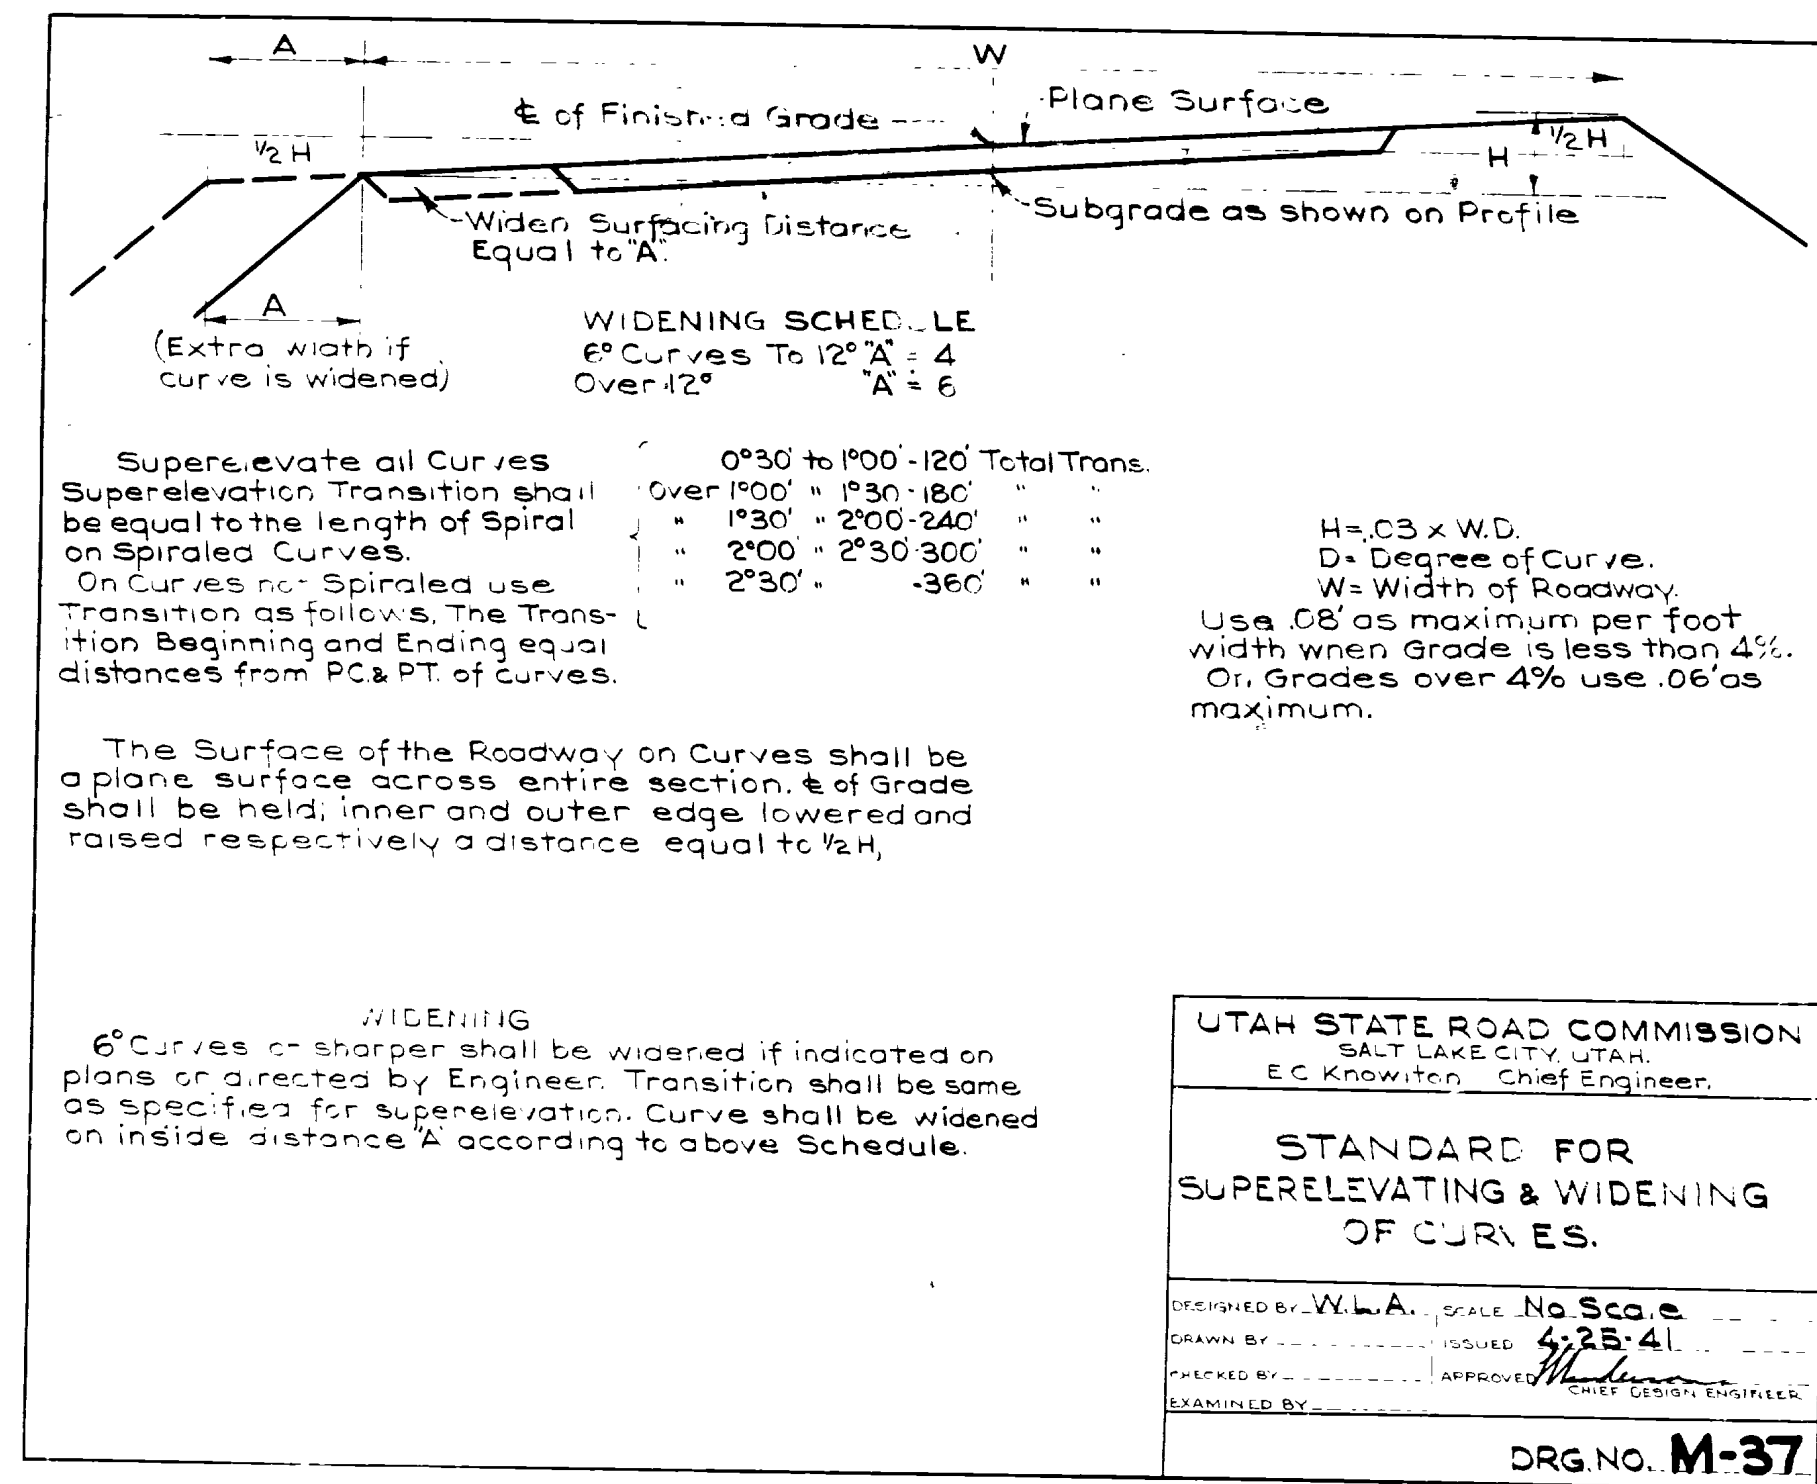 A
W
℄ of Finished Grade
Plane Surface
½ H
H
½ H
Widen Surfacing Distance
Equal to "A".
Subgrade as shown on Profile
A
(Extra width if
curve is widened)
WIDENING SCHEDULE
6° Curves To 12° "A" = 4
Over 12° "A" = 6
Superelevate all Curves
Superelevation Transition shall
be equal to the length of Spiral
on Spiraled Curves.
On Curves not Spiraled use
Transition as follows, The Trans-
ition Beginning and Ending equal
distances from P.C. & P.T. of curves.
0°30' to 1°00' - 120' Total Trans.
Over 1°00' " 1°30 - 180' " "
" 1°30' " 2°00 - 240' " "
" 2°00' " 2°30 - 300' " "
" 2°30' " - 360' " "
H = .03 x W.D.
D = Degree of Curve.
W = Width of Roadway.
Use .08' as maximum per foot
width when Grade is less than 4%.
On Grades over 4% use .06' as
maximum.
The Surface of the Roadway on Curves shall be
a plane surface across entire section. ℄ of Grade
shall be held; inner and outer edge lowered and
raised respectively a distance equal to ½ H,
WIDENING
6° Curves or sharper shall be widened if indicated on
plans or directed by Engineer. Transition shall be same
as specified for superelevation. Curve shall be widened
on inside distance "A" according to above Schedule.
UTAH STATE ROAD COMMISSION
SALT LAKE CITY, UTAH.
E C Knowlton Chief Engineer.
STANDARD FOR
SUPERELEVATING & WIDENING
OF CURVES.
DESIGNED BY W.L.A. SCALE No Scale
DRAWN BY ISSUED 4-25-41
CHECKED BY APPROVED
CHIEF DESIGN ENGINEER
EXAMINED BY
DRG. NO. M-37